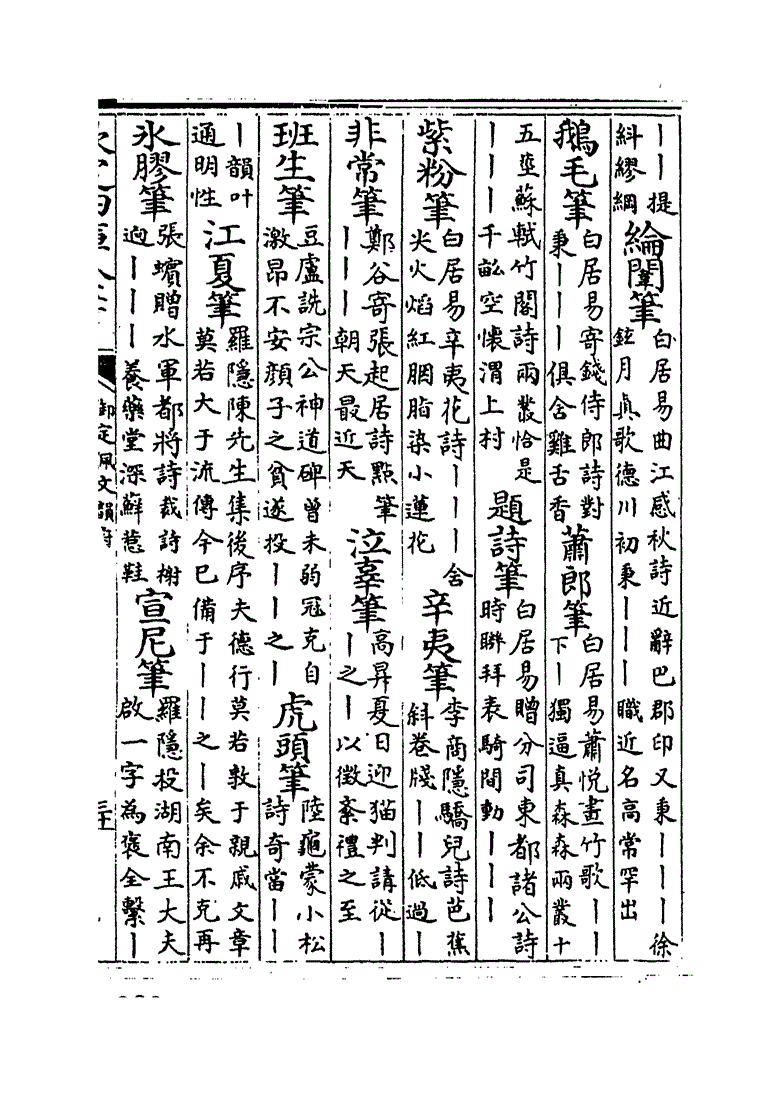 ｜｜提糾繆綱 綸闈筆 白居易曲江感秋詩近辭巴郡印又秉｜｜｜徐鉉月真歌德川初秉｜｜｜職近名高常罕出
鵝毛筆 白居易寄錢侍郎詩對秉｜｜｜俱含雞舌香 蕭郎筆 白居易蕭悅畫竹歌｜｜下｜獨逼真森森兩叢十
五莖蘇軾竹閣詩兩叢恰是｜｜｜千畝空懷渭上村 題詩筆 白居易贈分司東都諸公詩時聯拜表騎間動｜｜｜
紫粉筆 白居易辛夷花詩｜｜｜含尖火焰紅胭脂染小蓮花 辛夷筆 李商隱驕兒詩芭蕉斜卷牋｜｜低過｜
非常筆 鄭谷寄張起居詩點筆｜｜｜朝天最近天 泣辜筆 高昇夏日迎猫判請從｜｜之｜以徵索禮之至
班生筆 豆盧詵宗公神道碑曾未弱冠克自激昂不安顏子之貧遂投｜｜之｜ 虎頭筆 陸龜蒙小松詩奇當｜｜
｜韻叶通明性 江夏筆 羅隱陳先生集後序夫德行莫若敦于親戚文章莫若大于流傳今已備于｜｜之｜矣余不克再
氷膠筆 張蠙贈水軍都將詩裁詩榭迥｜｜｜養藥堂深蘚惹鞋 宣尼筆 羅隱投湖南王大夫啟一字為褒全繫｜
御定佩文韻府